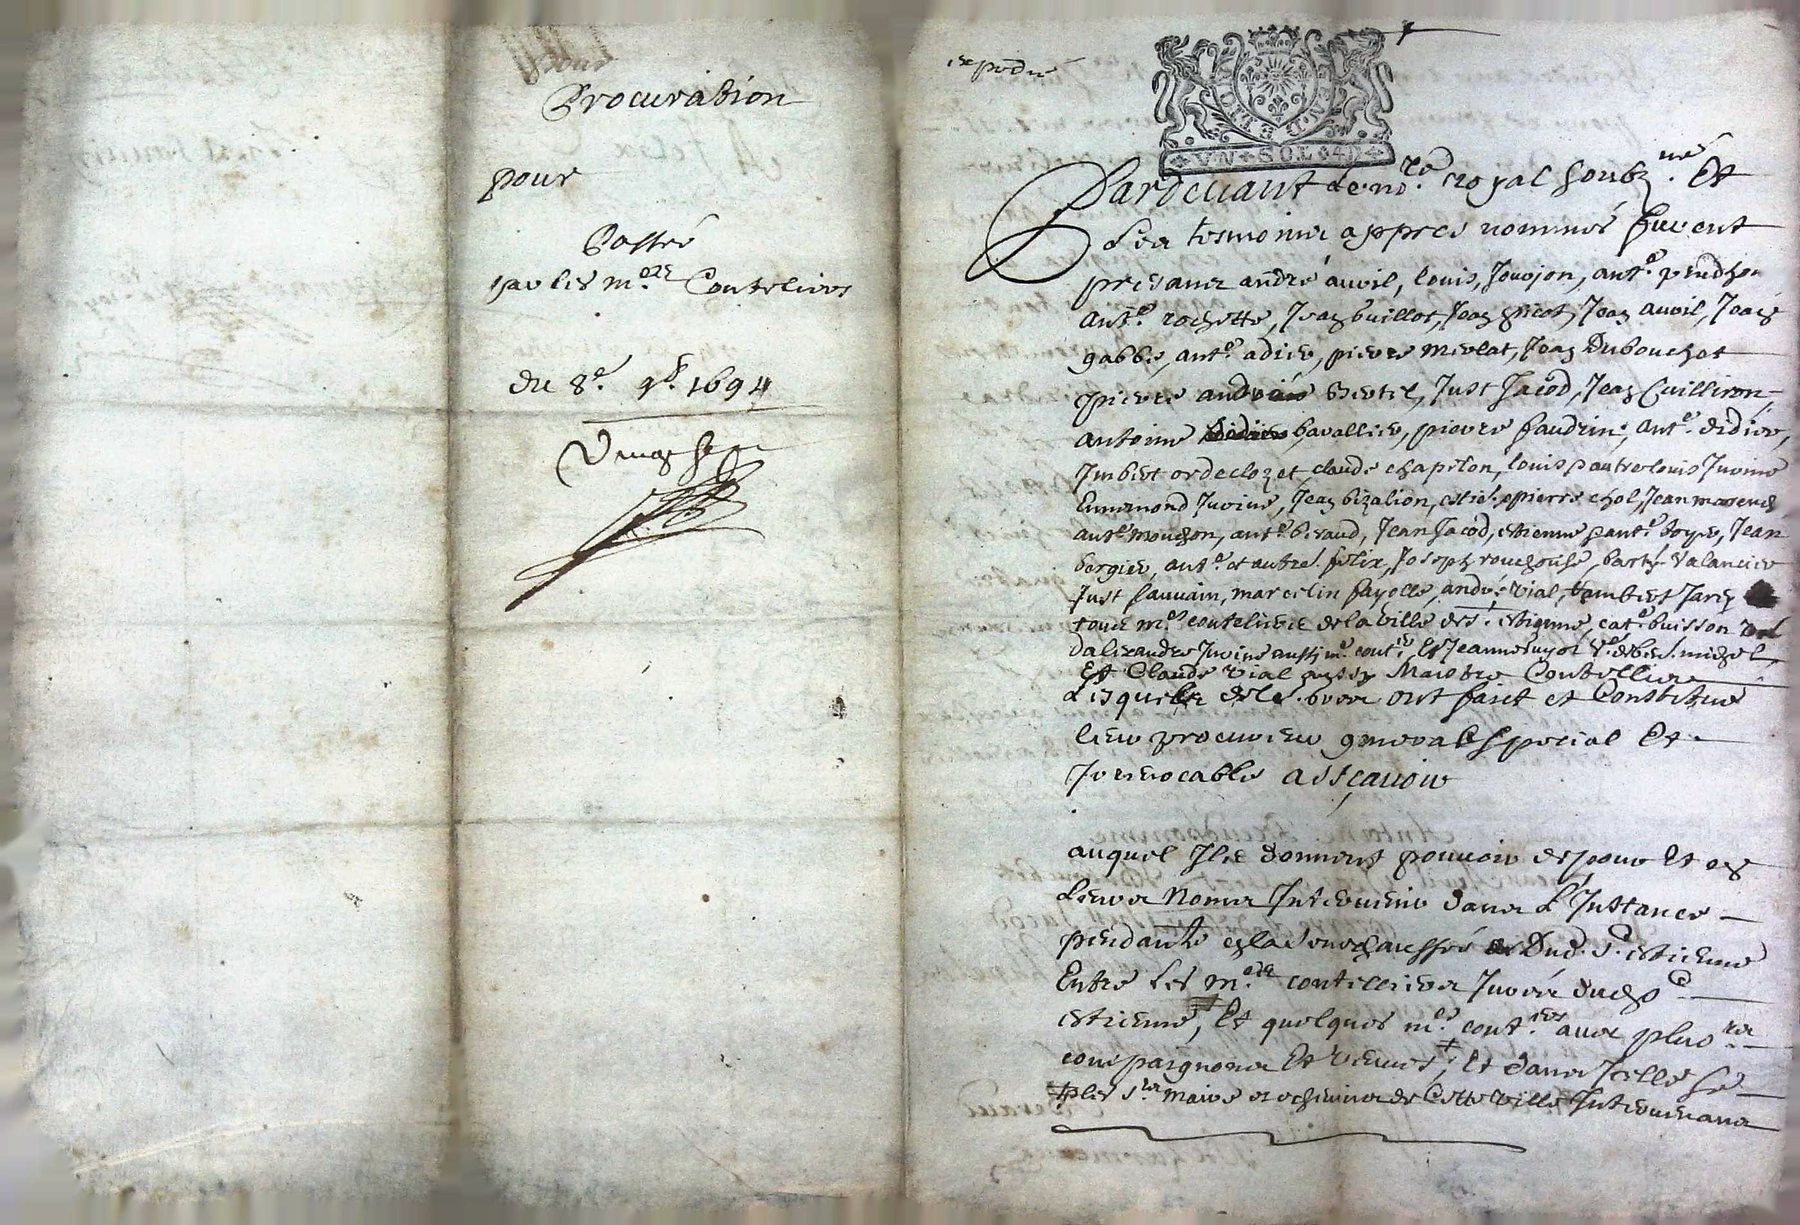 Procuration
pour
Passée
par les m.res Couteliers
du 8.e 9.b 1694
expedié
LION ET DVCHE
VN SOL 4D
Pardevant le no.re royal soubz.né Et
Les tesmoins apprès nommés furent
presans andré auvil, louis, Jouvjon, ant.e prudhon
ant.e rochette, Jean buillot, Jean gricot, Jean auvil, Jean
gabbe, ant.e adier, pierre merlat, Jean Dubouchet
pierre bertil, Just Jacod, Jean Cuilliron,
antoine cavallier, pierre faudrin, ant.e didier,
Imbert ordecloz et claude chapelon, louis p autre louis Juvine
Ennemond Juvine, Jean bizalion, estie. pierre chol, Jean
ant.e mouchon, ant.e beraud, Jean Jacod, estienne p ant.e boyer, Jean
bergier, ant.e et autre felix, Joseph rouchouse, barth. valancier
Just sauvain, marcelin fayolle, andré vial, lambert Jarey
tous m.es couteliers de la ville de S.t estienne, cat.e buisson
dalexandre Juvine aussy m.e cout.er Et Jeanne v.e michel
Et Claude vial aussy Maistre Coutellier
Lesquels de le. ont faict et Constitué
leur procureur general special Et
Irrevocable assçavoir
auquel Ils donnent pouvoir de pour Et en
Leurs Noms Intervenir dans L'Instance
pendante en la senechaussée Dud. S.t estienne
Entre Les m.res coutelliers Jurés dud. S.t
estienne, Et quelques m.es cout.iers avec plus.rs
compaignons Et veuves, Et dans Icelle
p les s.rs maire et echevins de Cette ville Intervenans